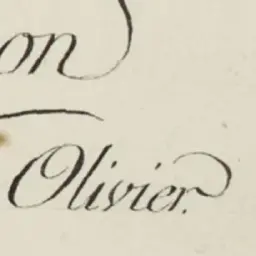 on
Olivier.